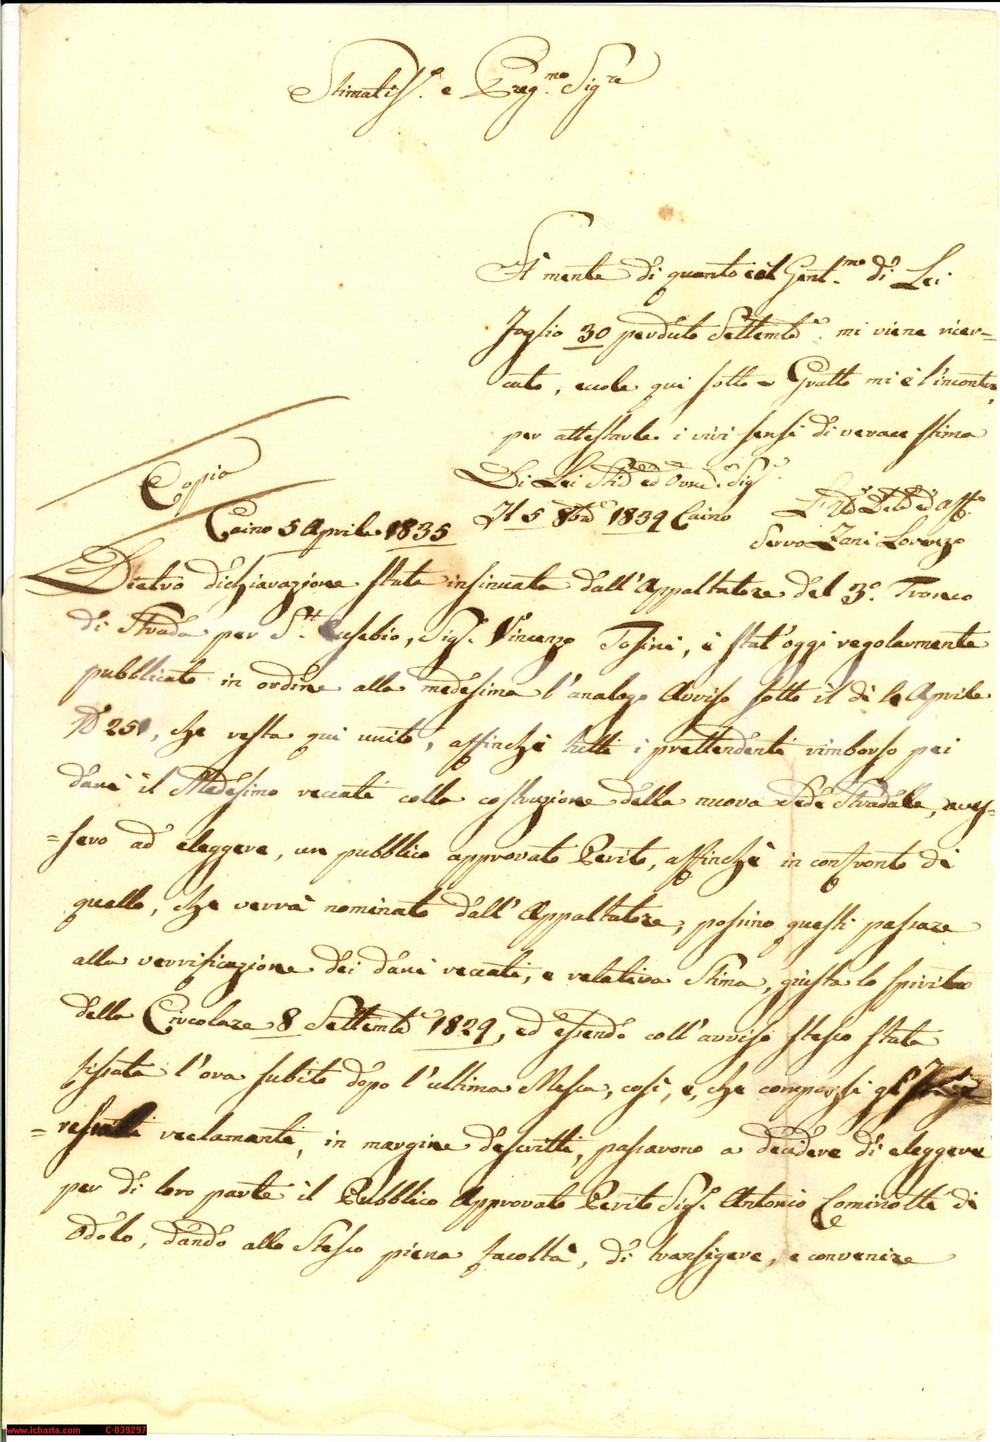 Stimatiss.º e Preg.mo Sig.re
A mente di quanto col Gent.mo di Lei
foglio 30 perduto Settemb.e mi viene ricer=
cato, eccole qui sotto e Gratto mi è l'incontro,
per attestarle i vivi sensi di verace stima
Di Lei Stid.mo ed Onord. Sig.e
Copia
Il 5 8bre 1839 Caino
Servo Zani Lorenzo
Caino 5 Aprile 1835
Dietro dichiarazione stata insinuata dall'Appaltatore del 3.º Tronco
di Strada per S.t Eusebio, Sig.r Vincenzo Tosini, è stat'oggi regolarmente
pubblicato in ordine alla medesima l'analogo Avviso sotto il dì Aprile
N.º 251, che resta qui unito, affinchè tutti i prettendenti rimborso pei
dani il Medesimo reccati colla costruzione della nuova Sede Stradale, aves=
=sero ad eleggere, un pubblico approvato Perito, affinchè in confronto di
quello, che verrà nominato dall'Appaltatore, possino questi passare
alla verrificazione dei dani reccati, e relativa Stima, giusta lo spirito
della Circolare 8 Settemb.e 1829, ed essendo coll'avviso stesso stata
fissata l'ora subito dopo l'ultima Messa, così, è, che comparsi gl'Inte
=ressati reclamanti, in margine descritti, passarono a decidere di eleggere
per di loro parte il Pubblico Approvato Perito Sig.r Antonio Cominotti di
Odolo, dando allo Stesso piena facoltà, di transigere, e convenire
www.icharta.com C-039297